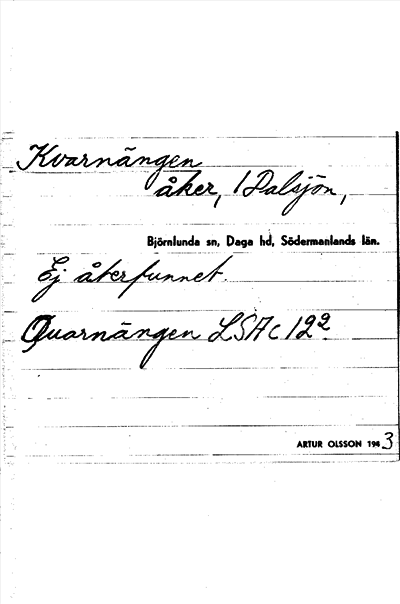 Kvarnängen
åker, 1 Dalsjön,
Björnlunda sn, Daga hd, Södermanlands län.
Ej återfunnet.
Quarnängen LSA C 12²
ARTUR OLSSON 1943